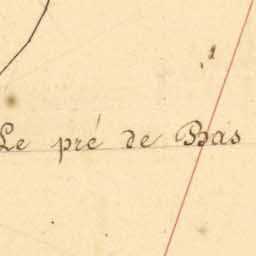 Le pré de Bas